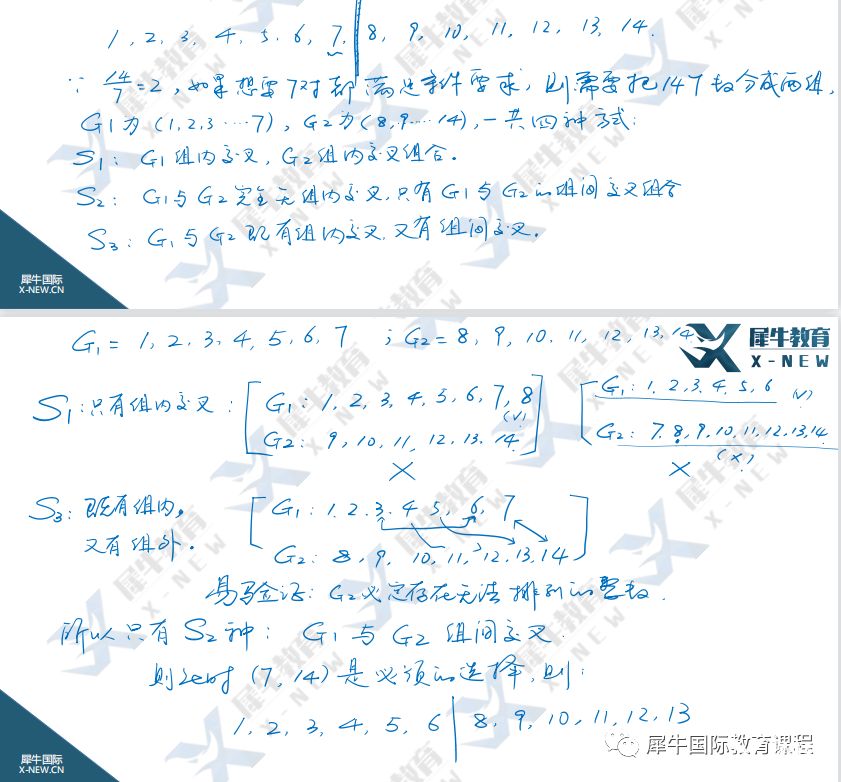 1, 2, 3, 4, 5, 6, 7, 8, 9, 10, 11, 12, 13, 14.
∵ 14/7 = 2, 如果想要7对都满足条件要求, 则需要把14个数分成两组,
G1为 (1,2,3····7), G2为(8,9····14), 一共四种方式:
S1: G1组内交叉, G2组内交叉组合.
S2: G1与G2完全无组内交叉, 只有G1与G2的组间交叉组合
S3: G1与G2既有组内交叉, 又有组间交叉.
犀牛国际
X-NEW.CN
G1 = 1, 2, 3, 4, 5, 6, 7 ; G2 = 8, 9, 10, 11, 12, 13, 14
犀牛教育
X-NEW
S1: 只有组内交叉: G1: 1, 2, 3, 4, 5, 6, 7, 8 (√) G1: 1, 2, 3, 4, 5, 6 (√)
G2: 9, 10, 11, 12, 13, 14 G2: 7, 8, 9, 10, 11, 12, 13, 14 (×)
× ×
S3: 既有组内, G1: 1, 2, 3, 4, 5, 6, 7
又有组外. G2: 8, 9, 10, 11, 12, 13, 14
易验证: G2必定存在无法排列的整数.
所以只有S2种: G1与G2组间交叉.
则此时 (7, 14) 是必须的选择, 则:
1, 2, 3, 4, 5, 6 | 8, 9, 10, 11, 12, 13
犀牛国际教育课程
犀牛国际
X-NEW.CN